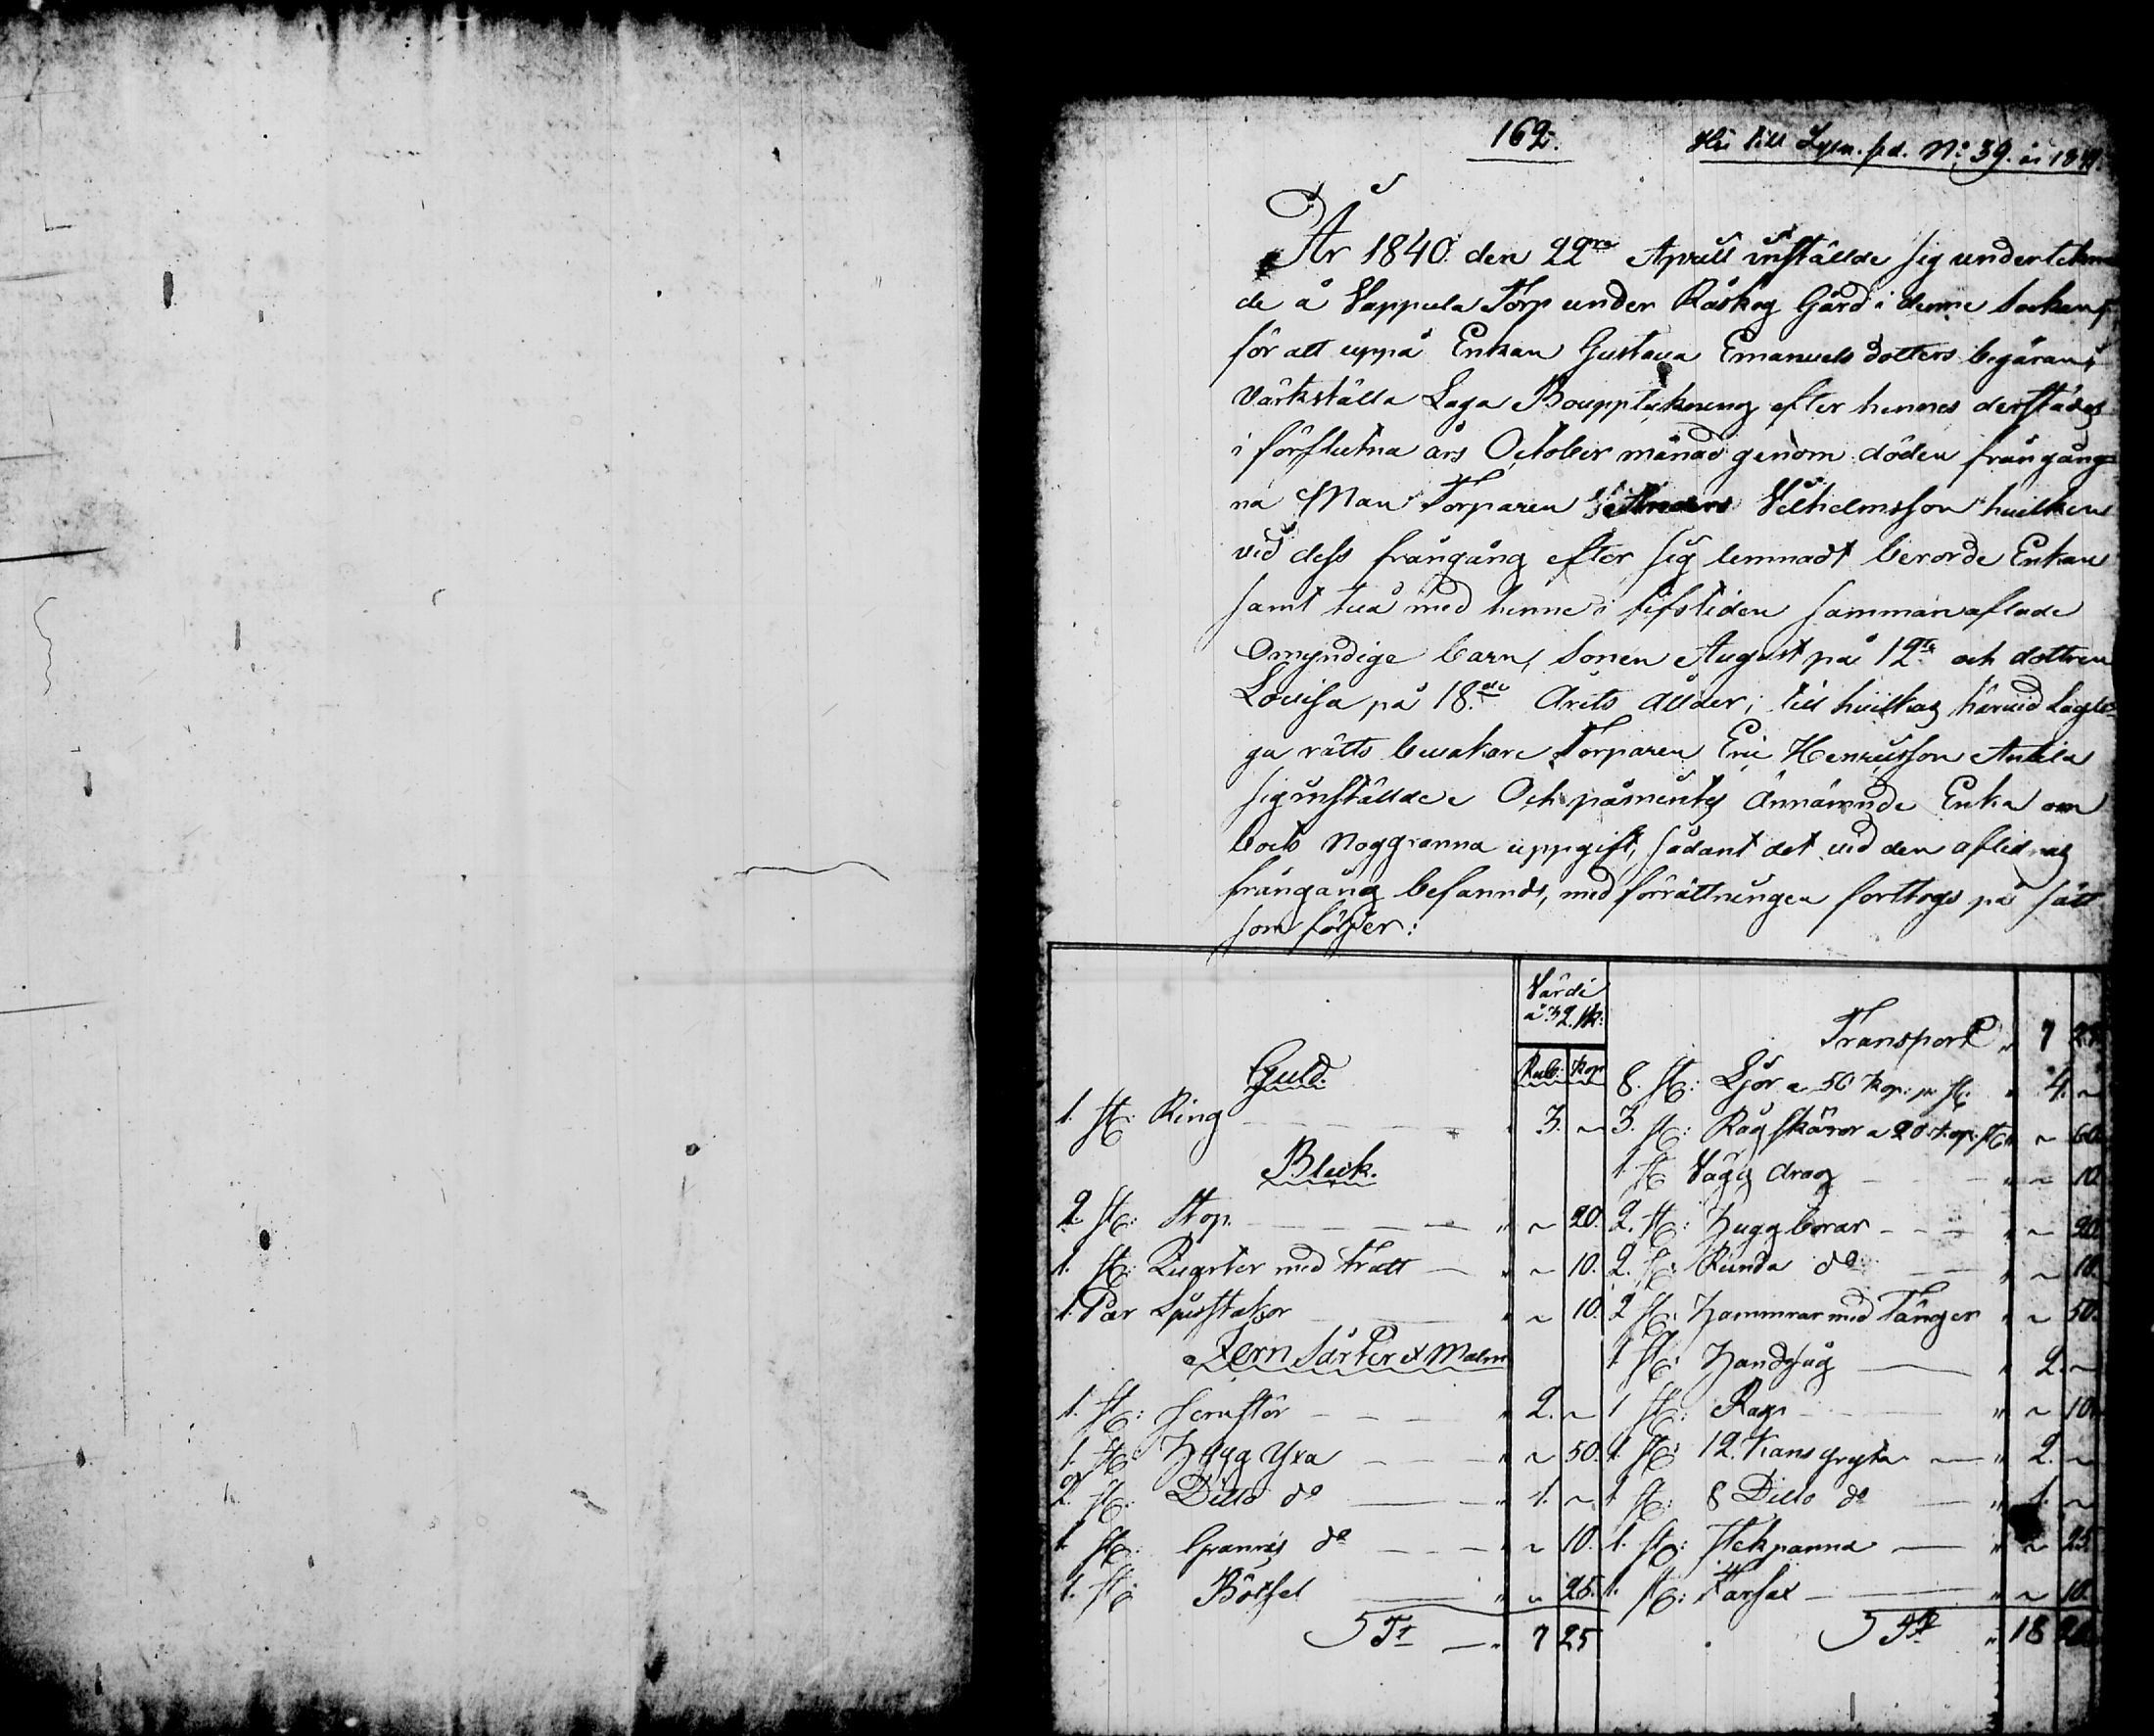 162.
No: 39. år 1841.
År 1840. den 22ra Aprill instälde sig underteckna
de å Vappula Torp under Råskog Gård i denne Socken,
för att uppå Enkan Gustava Emanuels dotters begäran,
värkställa Laga Bouppteckning efter hennes derstädes
i förflutna års October månad genom döden frångång
na Man Torparen Anders Vilhelmsson hvilken
vid dess frångång efter sig lemnadt berörde Enkan
samt två med henne i lifstiden sammanaflade
Omyndige barn, Sonen August på 12te och dottren
Lovisa på 18de Årets Ålder; till hvilkas härvid lagli
ga rätts bevakare Torparen Eric Henricsson Anttila
sig inställde. Och påmintes Ännämnde Enka om
boets noggranna uppgift, sådant det vid den aflidnas
frångång befanns, med förrättningen forttogs på sätt
som följer:
Värde
Rub: Kop
Guld.
1. st: Ring " 3. ~
Bleck.
2 st: Stop " ~ 20.
1. st: Quarter med Tratt " ~ 10.
1. Par Ljusstakor " ~ 10.
Jern Sårter & Malm
1. st: Jernstör " 2. ~
1. st: Hygg Yxa " ~ 50.
2. st: Ditto do " 1. ~
1 st: do " ~ 10.
1. st: Bötsel " ~ 25.
S Tr " 7 25
Transport " 7 25
8. st: Ljor a 50 Kop: pr st: " 4. ~
3. st: Rågskäror a 20 Kop: st " ~ 60.
1. st Vägg drag " ~ 10.
2. st: Huggborar " ~ 20
2. st: Runda do " ~ 10.
2 st: Hammrar med Tänger " ~ 50.
1 st: Handsåg " 2. ~
1 st: " ~ 10.
1. st: 12. Kans gryta " 2. ~
1 st: 8 Ditto do " 1. ~
1. st: Stekpanna " ~ 25
1. st: Fårsax " ~ 10.
S Tr " 18